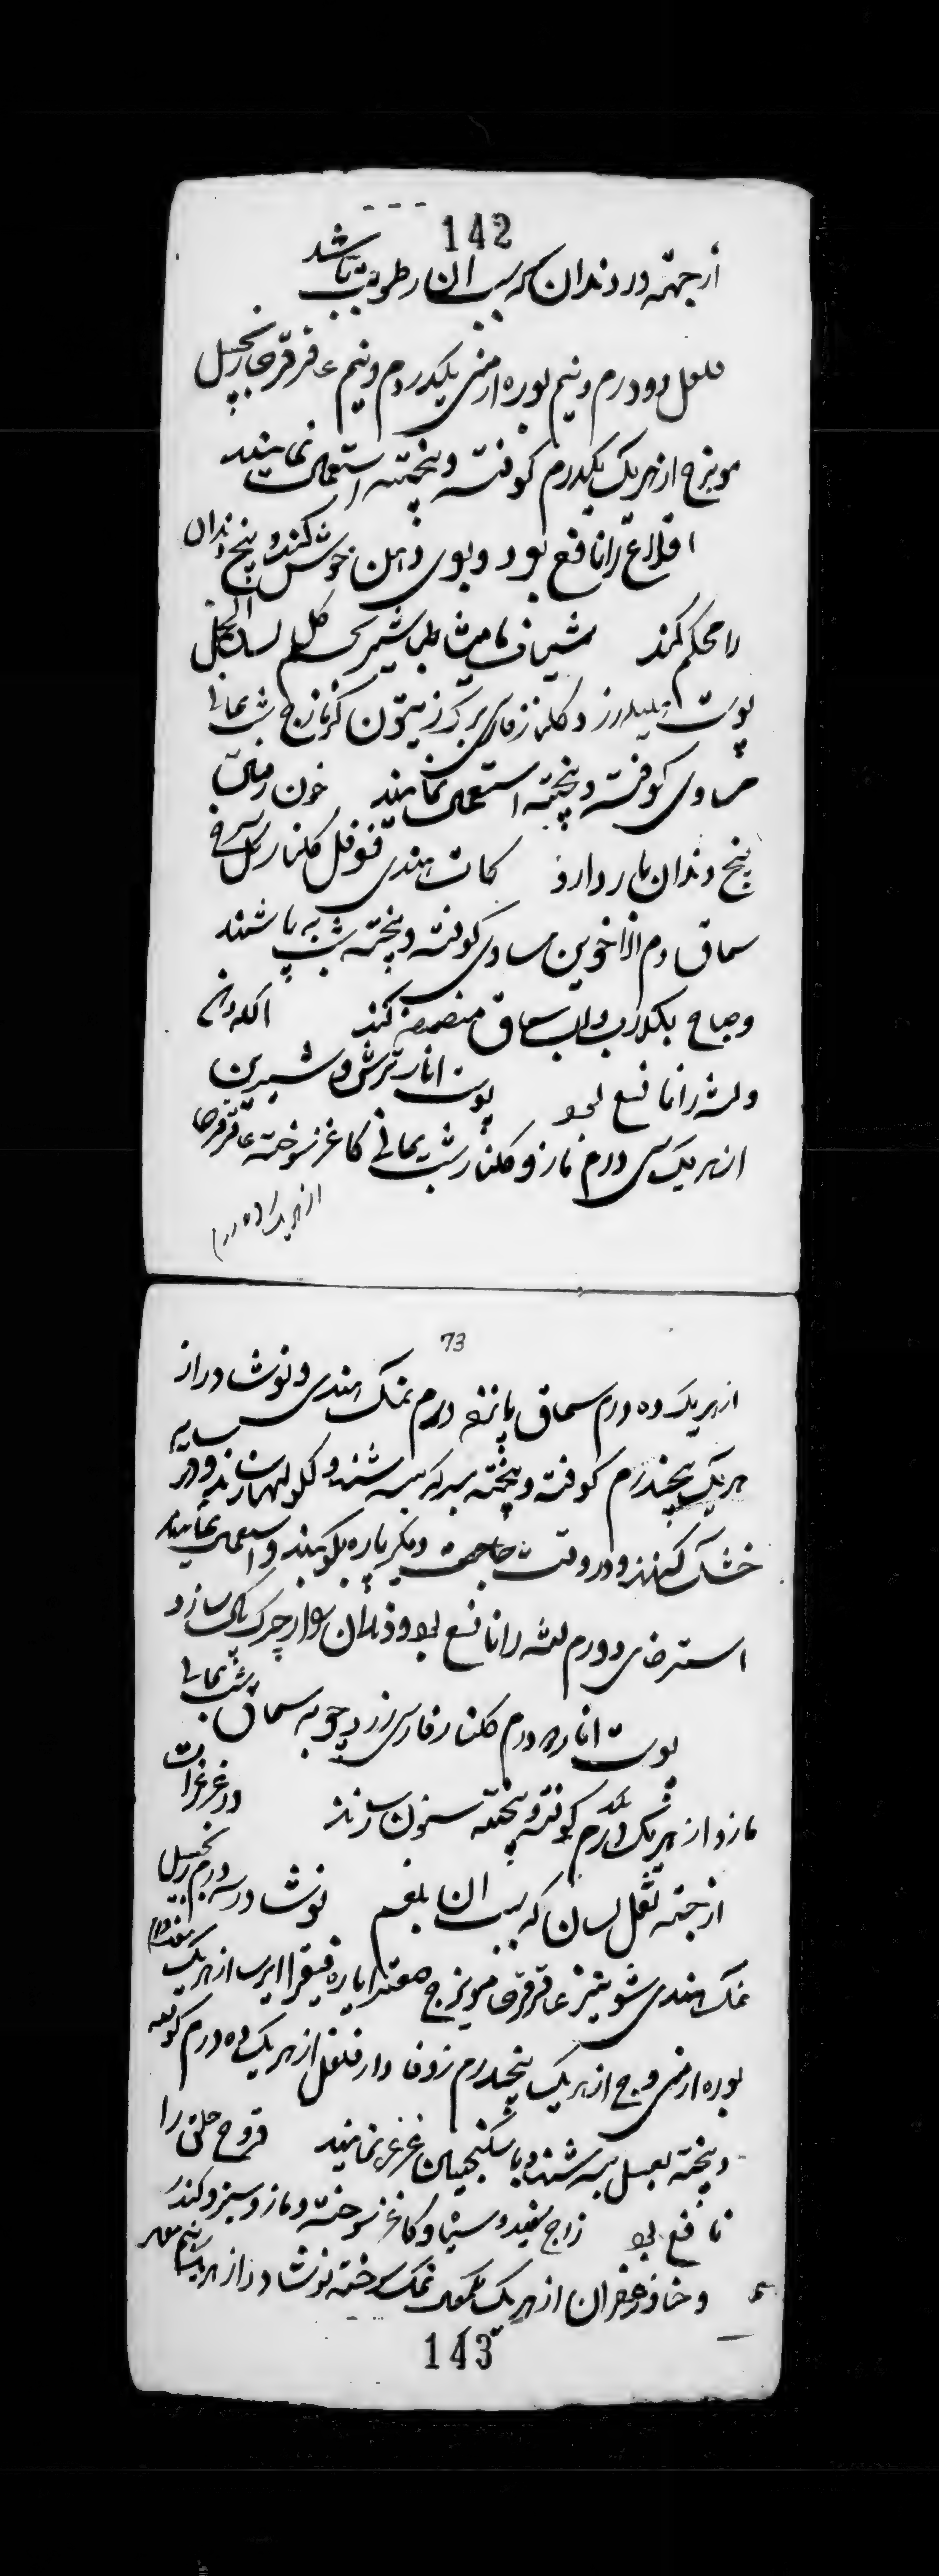 142
از جهة درد دندان که بسبب ان رطوبت باشد
فلفل دو درم و نیم بوره ارمنی یکدرم و نیم عاقرقرحا زنجبیل
مویزج از هر یک یکدرم کوفته و بیخته استعمال نمایند
اقلاع را نافع بود و بوی دهن خوش کند و بیخ دندان
را محکم کند شیاف مامیثا طباشیر تخم کل لسان الحمل
پوست هلیله زرد کلنار فارسی برک زیتون کزمازج شب یمانی
مساوی کوفته و بیخته استعمال نمایند خون رفتن
بیخ دندان باز دارد کات هندی فوفل کلنار کل سرخ
سماق دم الاخوین مساوی کوفته و بیخته شب به پاشند
و صباح بکلاب و اب سماق مضمضه کند اکله دهن
و لثه را نافع بود پوست انار ترش و شیرین
از هر یک سی درم مازو کلنار شب یمانی کاغذ سوخته عاقرقرحا
از هر یک ده درم
73
از هر یک ده درم سماق پانزده درم نمک هندی و نوشادر از
هر یک پنجدرم کوفته و بیخته بسرکه بسرشند و کلولها سازند و در سایه
خشک کنند و در وقت حاجت دیکر باره بکوبند و استعمال نمایند
استرخای و ورم لثه را نافع بود و دندان را از چرک پاک سازد
پوست انار ده درم کلنار فارسی زردچوبه سماق شب یمانی
مازو از هر یک یکدرم کوفته و بیخته سنون سازند در غرغرات
از جهة ثقل لسان که بسبب ان بلغم نوشادر سه درم زنجبیل
نمک هندی شونیز عاقرقرحا مویزج صعتر ایاره فیقرا ایرسا از هر یک هفتدرم
بوره ارمنی وج از هر یک پنجدرم زوفا دارفلفل از هر یک ده درم کوفته
و بیخته بعسل بسرشند و با سکنجبین غرغره نمایند قروح حلق را
نافع بود زاج سفید و سیاه و کاغذ سوخته و مازو سبز و کندر
و حنا و زعفران از هر یک نمک سوخته نوشادر از هر یک نیم
143